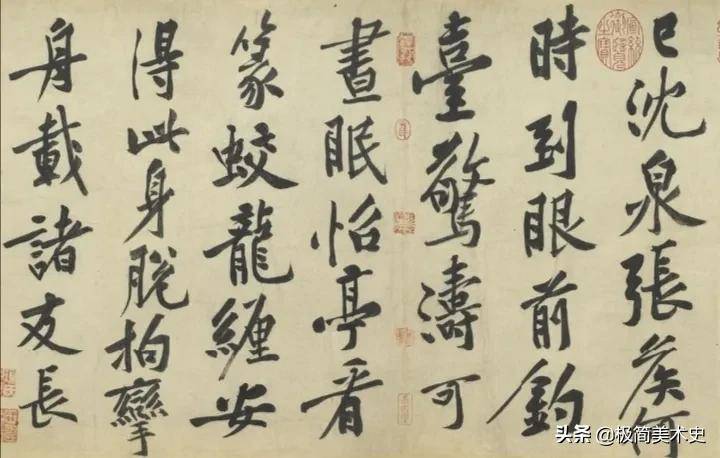 已沈泉張矦何
時到眼前釣
臺驚濤可
晝眠怡亭看
篆蛟龍纏安
得此身脫拘攣
舟載諸友長
头条 @极简美术史